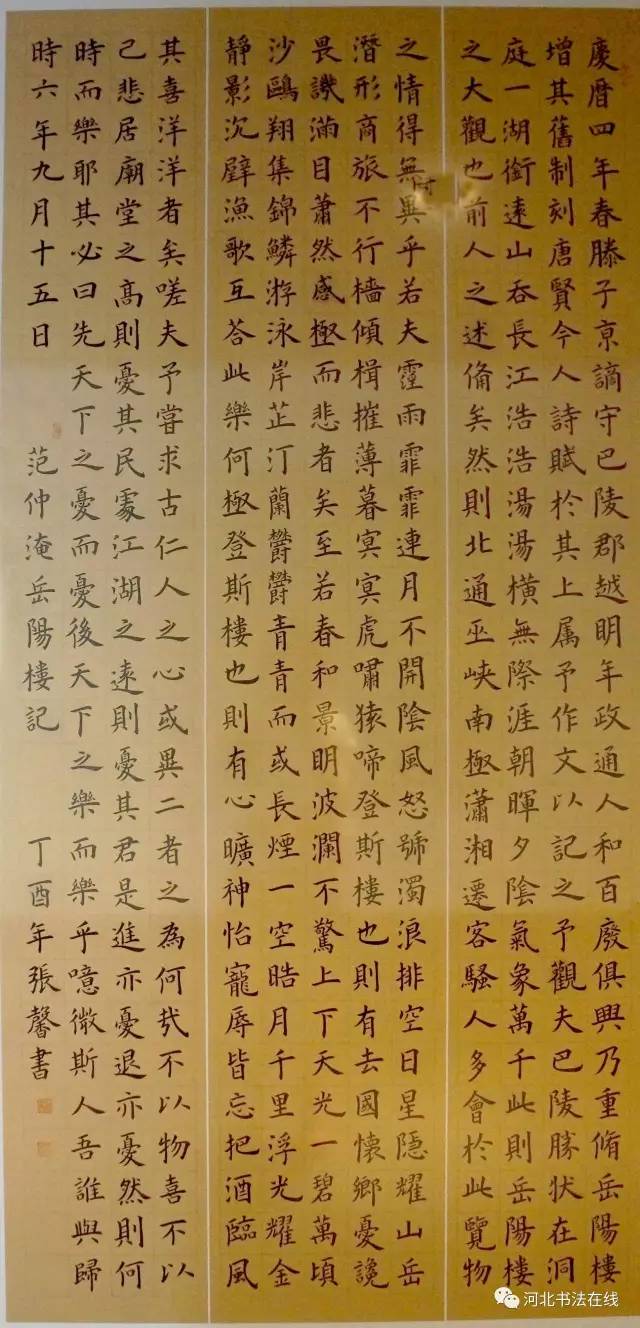 慶曆四年春滕子京謫守巴陵郡越明年政通人和百廢俱興乃重脩岳陽樓
增其舊制刻唐賢今人詩賦於其上属予作文以記之予觀夫巴陵勝状在洞
庭一湖銜遠山吞長江浩浩湯湯橫無際涯朝暉夕陰氣象萬千此則岳陽樓
之大觀也前人之述俻矣然則北通巫峽南極瀟湘遷客騷人多會於此覽物
之情得無異乎若夫霪雨霏霏連月不開陰風怒號濁浪排空日星隱耀山岳
潛形商旅不行檣傾楫摧薄暮冥冥虎嘯猿啼登斯樓也則有去國懷鄉憂讒
畏譏滿目蕭然感極而悲者矣至若春和景明波瀾不驚上下天光一碧萬頃
沙鷗翔集錦鱗游泳岸芷汀蘭鬱鬱青青而或長煙一空晧月千里浮光耀金
靜影沉璧漁歌互荅此樂何極登斯樓也則有心曠神怡寵辱皆忘把酒臨風
其喜洋洋者矣嗟夫予嘗求古仁人之心或異二者之為何哉不以物喜不以
己悲居廟堂之高則憂其民處江湖之遠則憂其君是進亦憂退亦憂然則何
時而樂耶其必曰先天下之憂而憂後天下之樂而樂乎噫微斯人吾誰與歸
時六年九月十五日 范仲淹岳陽樓記 丁酉年張馨書
河北书法在线